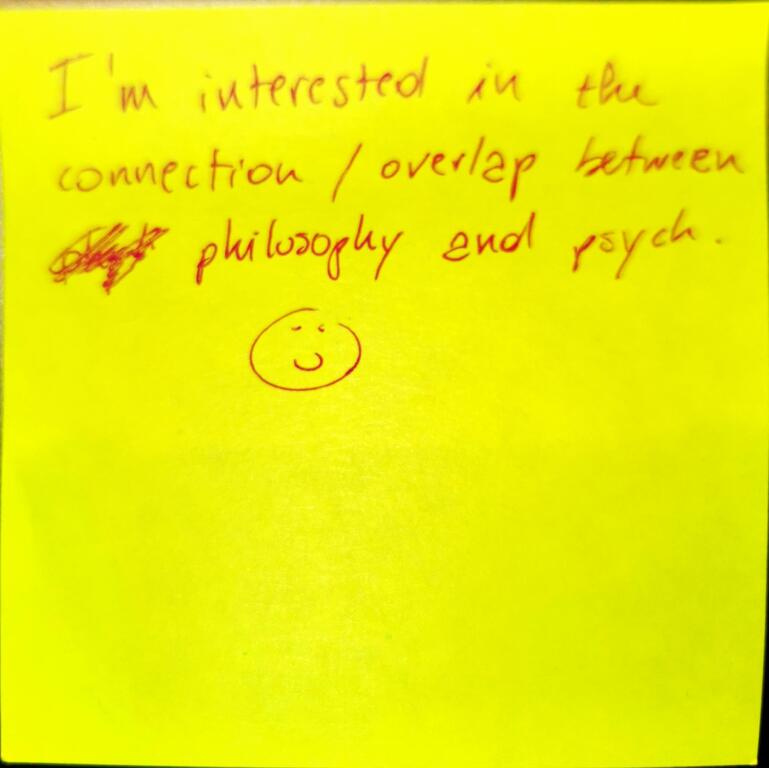 I'm interested in the
connection / overlap between
philosophy and psych.